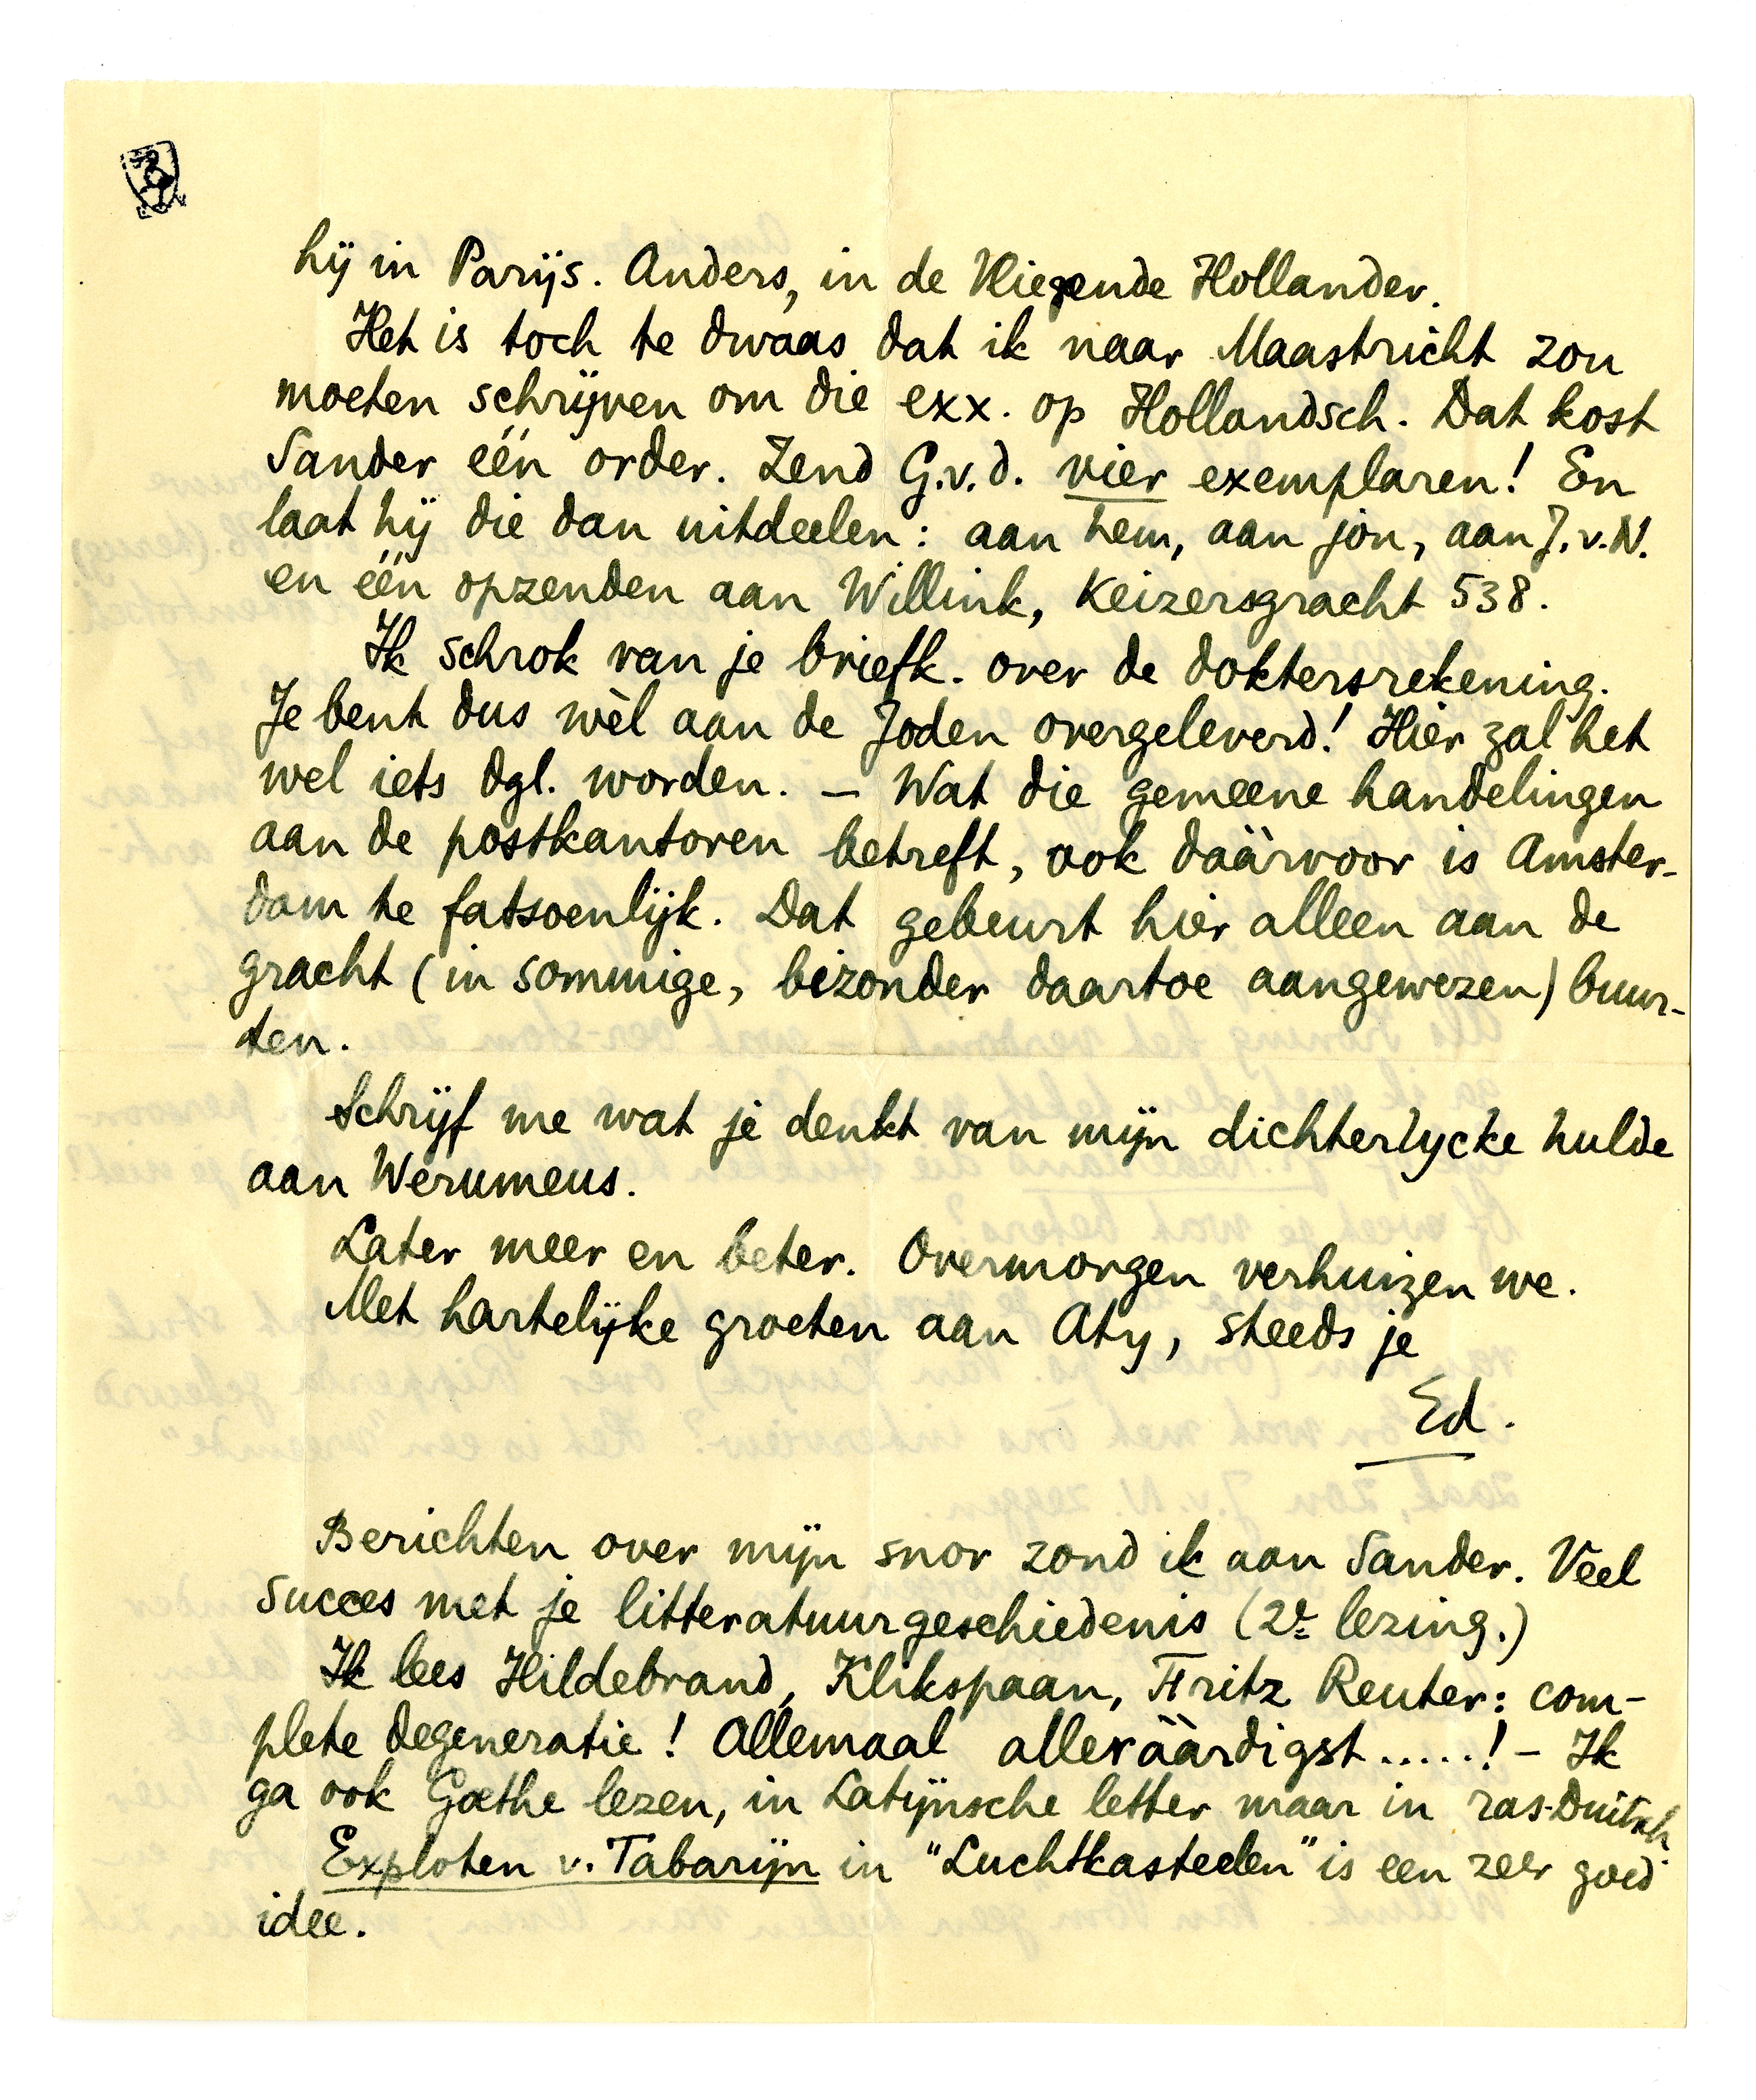 hij in Parijs. Anders, in de Vliegende Hollander.
Het is toch te dwaas dat ik naar Maastricht zou
moeten schrijven om die exx. op Hollandsch. Dat kost
Sander één order. Zend G.v.d. vier exemplaren! En
laat hij die dan uitdeelen: aan hem, aan jòn, aan J.v.N.
en één opzenden aan Willink, Keizersgracht 538.
Ik schrok van je briefk. over de doktersrekening.
Je bent dus wèl aan de Joden overgeleverd! Hier zal het
wel iets dgl. worden. – Wat die gemeene handelingen
aan de postkantoren betreft, ook dààrvoor is Amster-
dam te fatsoenlijk. Dat gebeurt hier alleen aan de
gracht (in sommige, bizonder daartoe aangewezen) buur-
ten.
Schrijf me wat je denkt van mijn dichterlycke hulde
aan Werumeus.
Later meer en beter. Overmorgen verhuizen we.
Met hartelijke groeten aan Aty, steeds je
Ed.
Berichten over mijn snor zond ik aan Sander. Veel
succes met je litteratuurgeschiedenis (2e lezing.)
Ik lees Hildebrand, Klikspaan, Fritz Reuter: com-
plete degeneratie! Allemaal allerààrdigst.....! – Ik
ga ook Goethe lezen, in Latijnsche letter maar in ras-Duitsch.
Exploten v. Tabarijn in "Luchtkasteelen" is een zeer goed
idee.